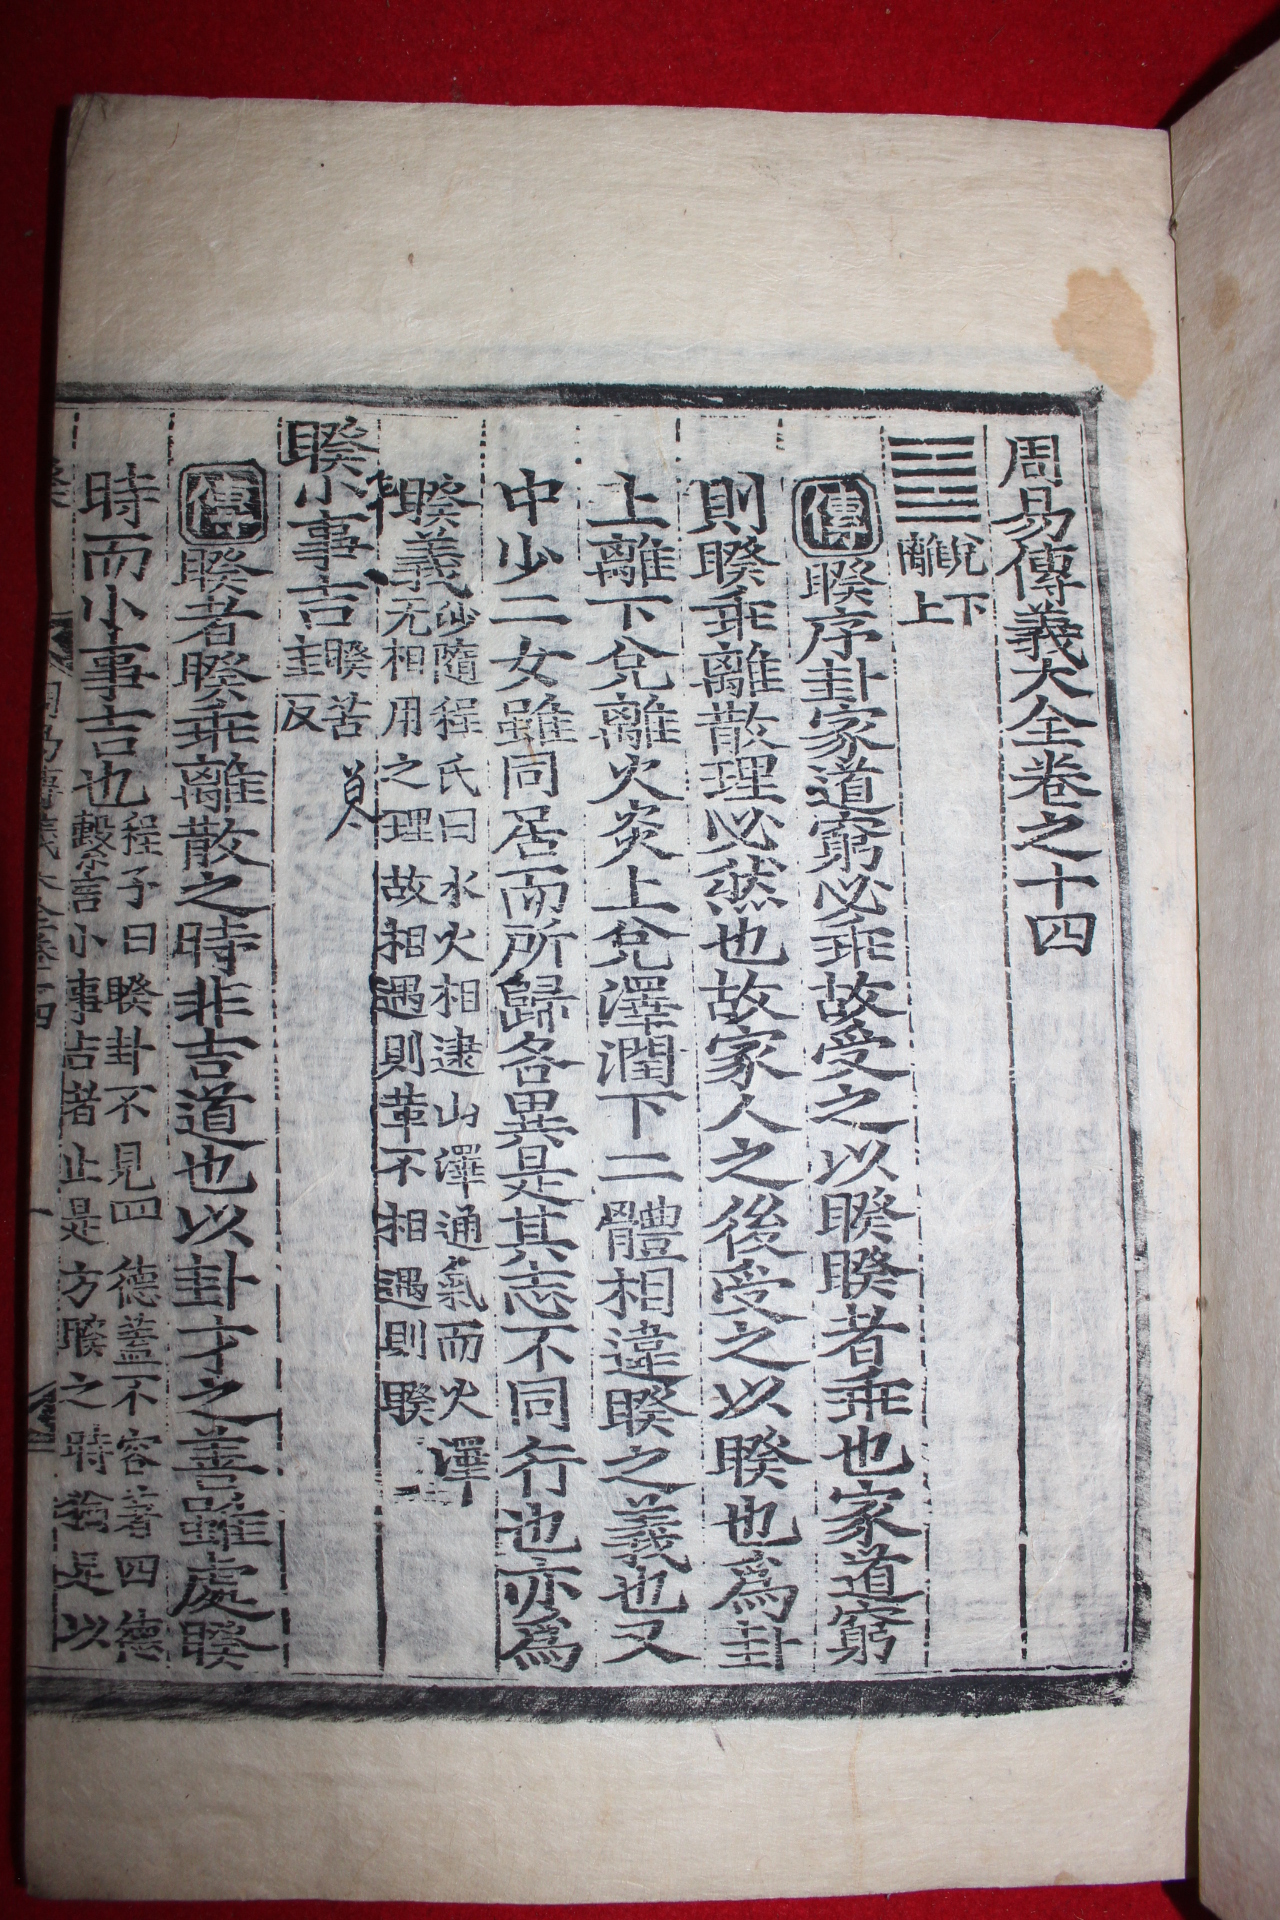 周易傳義大全卷之十四
兌下
離上
傳睽序卦家道窮必乖故受之以睽睽者乖也家道窮
則睽乖離散理必然也故家人之後受之以睽也爲卦
上離下兌離火炎上兌澤潤下二體相違睽之義也又
中少二女雖同居而所歸各異是其志不同行也亦爲
睽義沙隨程氏曰水火相逮山澤通氣而火澤
无相用之理故相遇則革不相遇則睽
睽小事吉睽苦
圭反
傳睽者睽乖離散之時非吉道也以卦才之善雖處睽
時而小事吉也程子曰睽卦不見四德蓋不容著四德
繫言小事吉者止是方睽之時猶足以
周易傳義大全卷十四